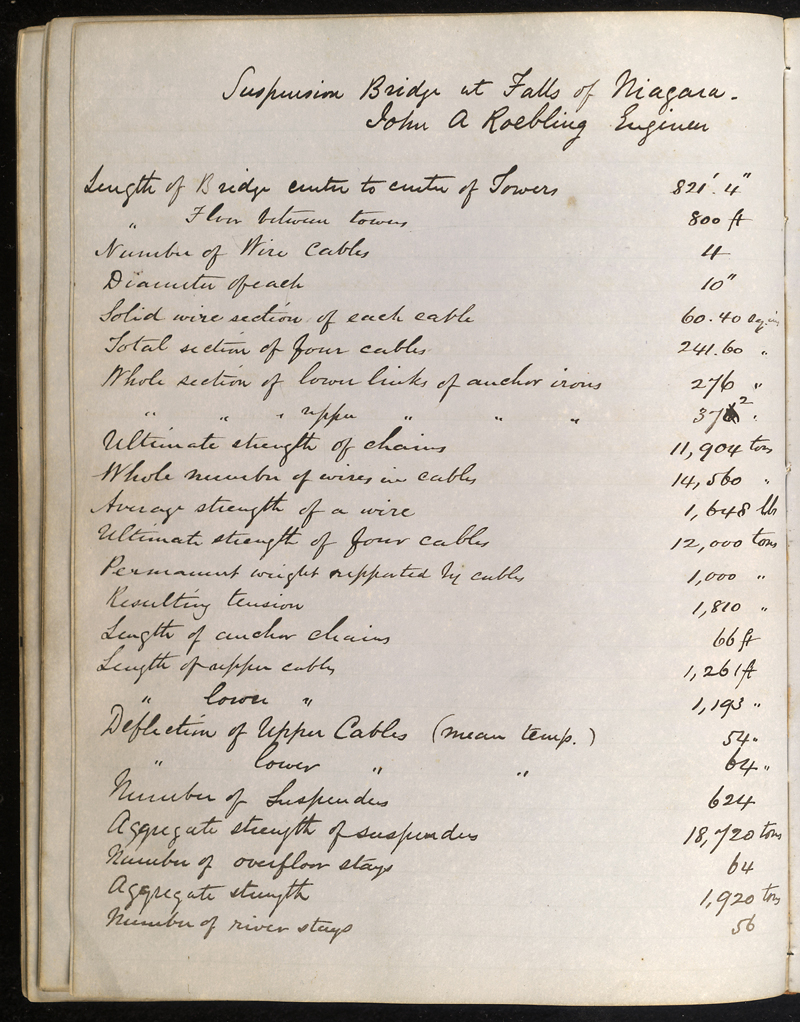 Suspension Bridge at Falls of Niagara.
John A Roebling Engineer
Length of Bridge center to center of Towers 821'. 4"
" Floor between towers 800 ft
Number of Wire Cables 4
Diameter of each 10"
Solid wire section of each cable 60.40 sq. in
Total section of four cables 241.60 "
Whole section of lower links of anchor irons 276 "
" " " upper " " " 372 "
Ultimate strength of chains 11,904 tons
Whole number of wires in cables 14,560 "
Average strength of a wire 1,648 lbs
Ultimate strength of four cables 12,000 tons
Permanent weight supported by cables 1,000 "
Resulting tension 1,810 "
Length of anchor chains 66 ft
Length of upper cables 1,261 ft
" lower " 1,193 "
Deflection of Upper Cables (mean temp.) 54 "
" lower " " 64 "
Number of Suspenders 624
Aggregate strength of suspenders 18,720 tons
Number of overfloor stays 64
Aggregate strength 1,920 tons
Number of river stays 56